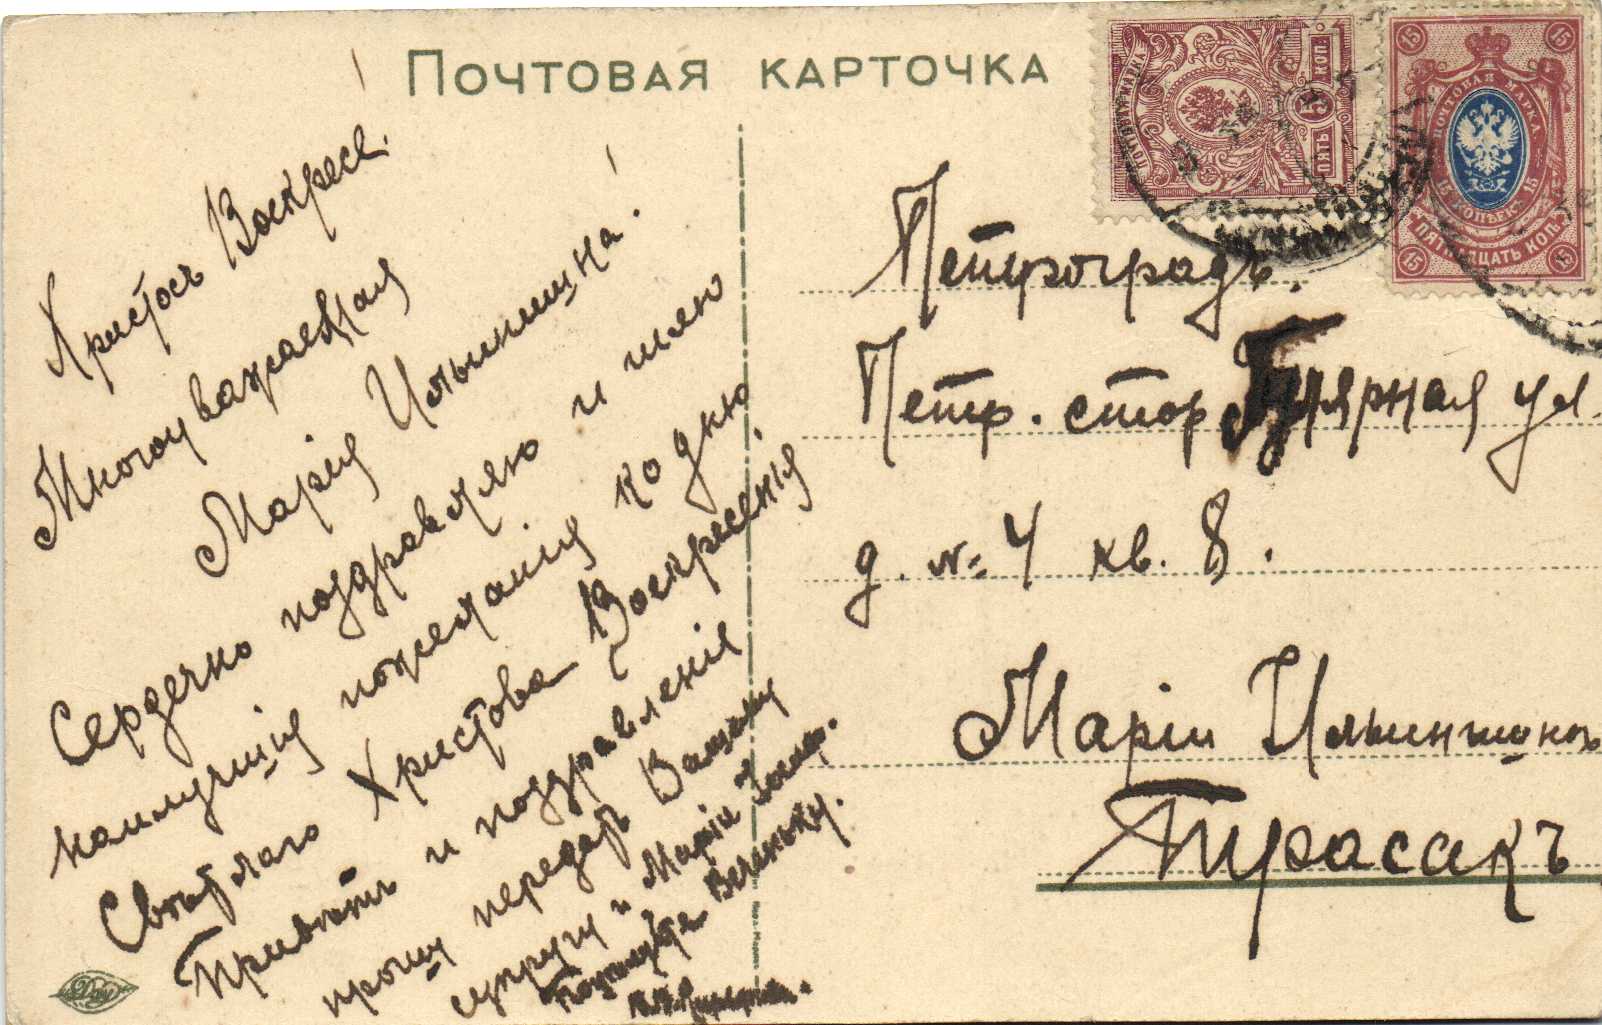 Почтовая карточка
Христосъ Воскресе!
Многоуважаемая
Марія Ильинишна!
Сердечно поздравляю и шлю
наилучшія пожеланія ко дню
Свѣтлаго Христова Воскресенія
Привѣтъ и поздравленія
прошу передать Вашему
супругу и Маріи
Поцелуйте Веничку.
Петроградъ.
Петр. стор. ул.
д. № 4 кв. 8.
Маріи Ильинишнѣ
Трасакъ
ПОЧТОВАЯ МАРКА
5 КОП.
ПЯТЬ
15
ПОЧТОВАЯ МАРКА
15 КОПѢЕКЪ 15
ПЯТНАДЦАТЬ КОП.